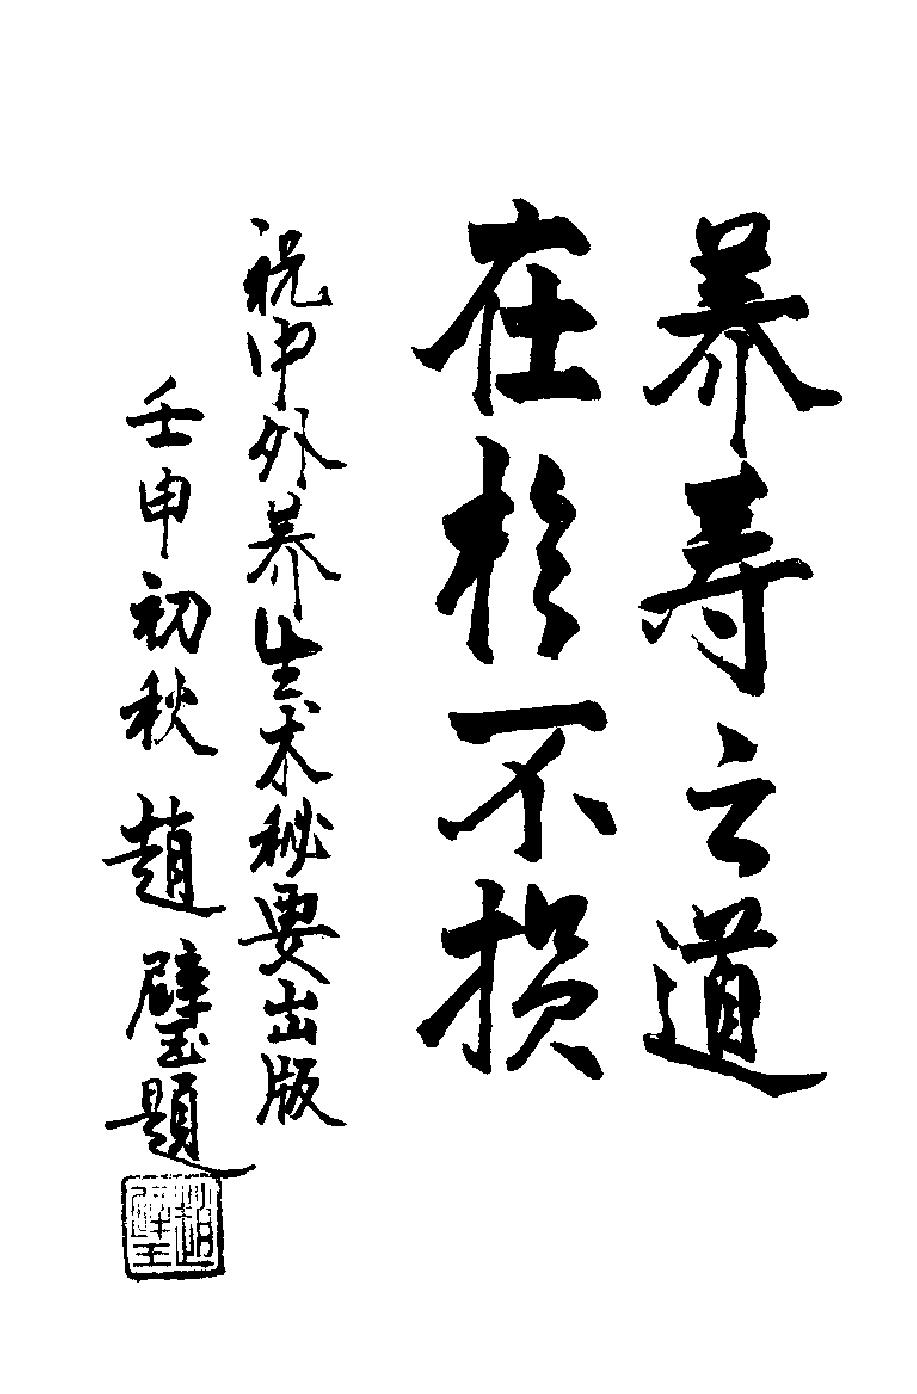 养寿之道
在於不损
祝中外养生术秘要出版
壬申初秋 趙璧題
趙璧